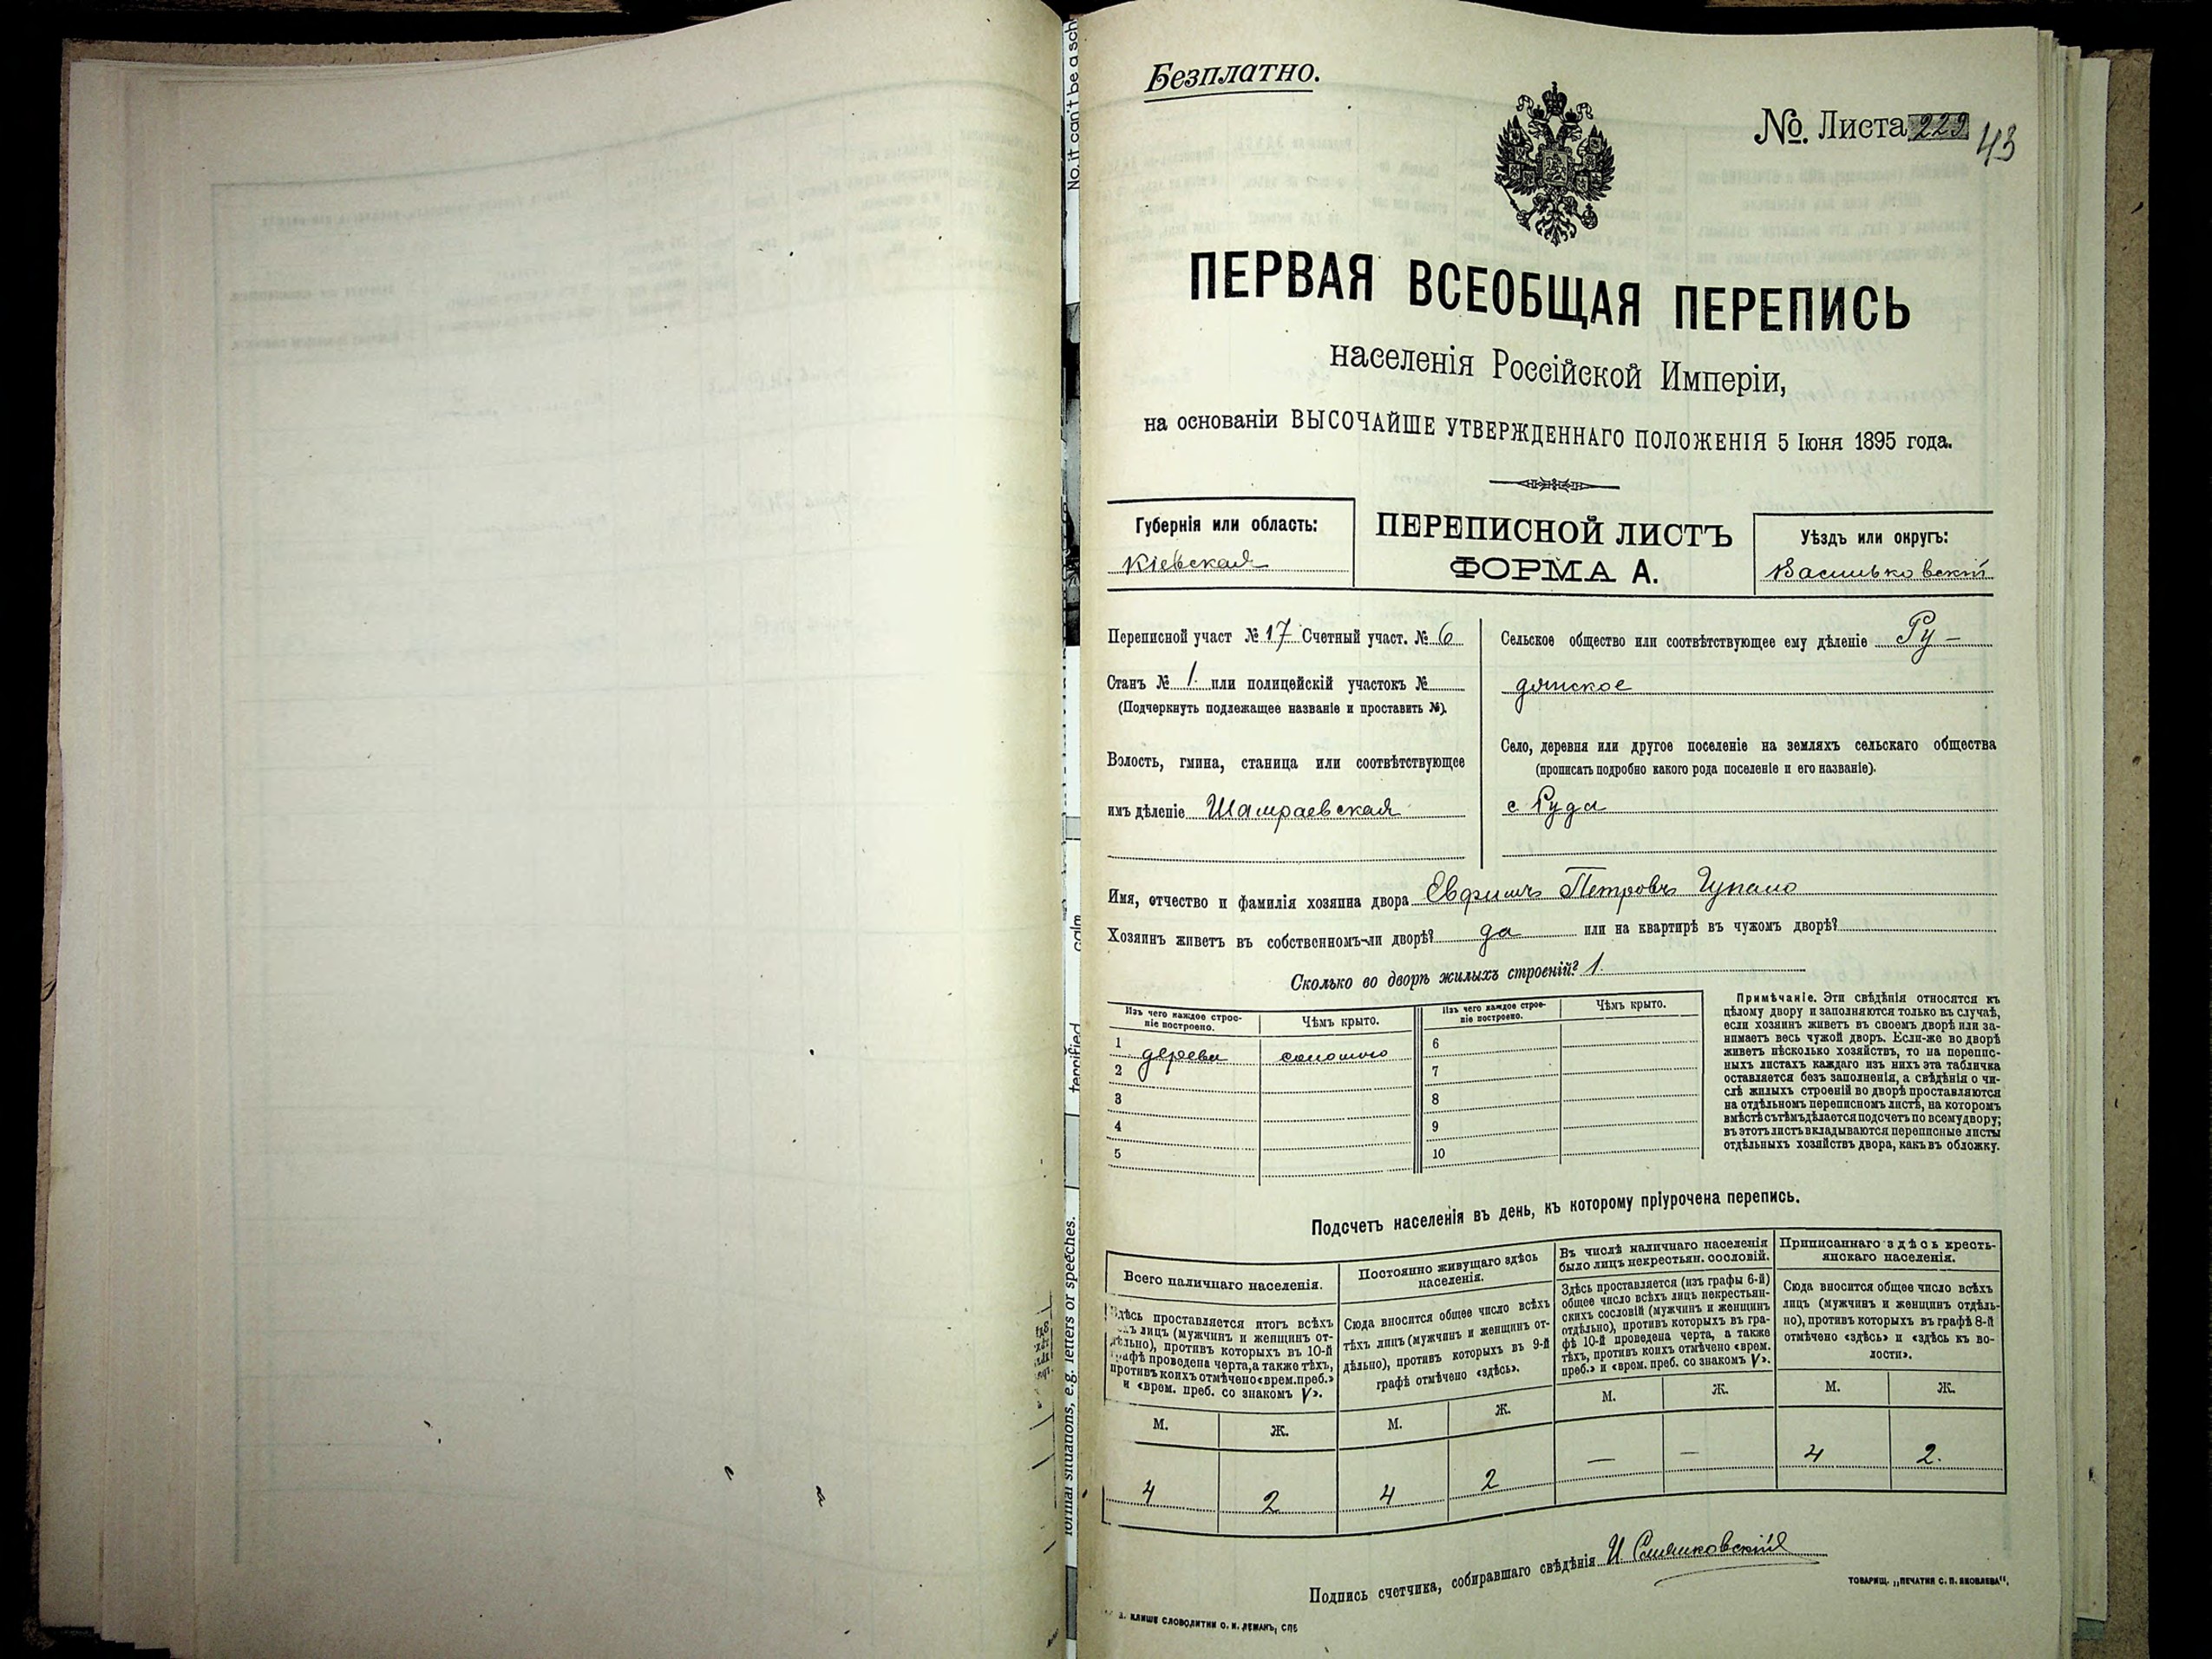 Безплатно.
№. Листа 229 43
ПЕРВАЯ ВСЕОБЩАЯ ПЕРЕПИСЬ
населенія Россійской Имперіи,
на основаніи ВЫСОЧАЙШЕ УТВЕРЖДЕННАГО ПОЛОЖЕНІЯ 5 Іюня 1895 года.
Губернія или область:
Кіевская
ПЕРЕПИСНОЙ ЛИСТЪ
ФОРМА А.
Уѣздъ или округъ:
Васильковскій
Переписной участ № 17 Счетный участ. № 6
Станъ № 1. или полицейскій участокъ №
(Подчеркнуть подлежащее названіе и проставить №).
Волость, гмина, станица или соотвѣтствующее
имъ дѣленіе Шамраевская
Сельское общество или соотвѣтствующее ему дѣленіе Ру-
дянское
Село, деревня или другое поселеніе на земляхъ сельскаго общества
(прописать подробно какого рода поселеніе и его названіе).
с. Руда
Имя, отчество и фамилія хозяина двора Евфимъ Петровъ
Хозяинъ живетъ въ собственномъ-ли дворѣ? да или на квартирѣ въ чужомъ дворѣ?
Сколько во дворѣ жилыхъ строеній? 1.
Изъ чего каждое строе-
ніе построено.
Чѣмъ крыто.
Изъ чего каждое строе-
ніе построено.
Чѣмъ крыто.
1 дерева соломою 6
2 7
3 8
4 9
5 10
Примѣчаніе. Эти свѣдѣнія относятся къ
цѣлому двору и заполняются только въ случаѣ,
если хозяинъ живетъ въ своемъ дворѣ или за-
нимаетъ весь чужой дворъ. Если-же во дворѣ
живетъ нѣсколько хозяйствъ, то на перепис-
ныхъ листахъ каждаго изъ нихъ эта табличка
оставляется безъ заполненія, а свѣдѣнія о чи-
слѣ жилыхъ строеній во дворѣ проставляются
на отдѣльномъ переписномъ листѣ, на которомъ
вмѣстѣ съ тѣмъ дѣлается подсчетъ по всему двору;
въ этотъ листъ вкладываются переписные листы
отдѣльныхъ хозяйствъ двора, какъ въ обложку.
Подсчетъ населенія въ день, къ которому пріурочена перепись.
Всего наличнаго населенія.
Здѣсь проставляется итогъ всѣхъ
лицъ (мужчинъ и женщинъ от-
дѣльно), противъ которыхъ въ 10-й
графѣ проведена черта, а также тѣхъ,
противъ коихъ отмѣчено «врем. преб.»
и «врем. преб. со знакомъ V».
Постоянно живущаго здѣсь
населенія.
Сюда вносится общее число всѣхъ
тѣхъ лицъ (мужчинъ и женщинъ от-
дѣльно), противъ которыхъ въ 9-й
графѣ отмѣчено «здѣсь».
Въ числѣ наличнаго населенія
было лицъ некрестьян. сословій.
Здѣсь проставляется (изъ графы 6-й)
общее число всѣхъ лицъ некрестьян-
скихъ сословій (мужчинъ и женщинъ
отдѣльно), противъ которыхъ въ гра-
фѣ 10-й проведена черта, а также
тѣхъ, противъ коихъ отмѣчено «врем.
преб.» и «врем. преб. со знакомъ V».
Приписаннаго здѣсь кресть-
янскаго населенія.
Сюда вносится общее число всѣхъ
лицъ (мужчинъ и женщинъ отдѣль-
но), противъ которыхъ въ графѣ 8-й
отмѣчено «здѣсь» и «здѣсь къ во-
лости».
М. Ж. М. Ж. М. Ж. М. Ж.
4 2 4 2 — — 4 2.
Подпись счетчика, собиравшаго свѣдѣнія И.
ТОВАРИЩ. „ПЕЧАТНЯ С. П. ЯКОВЛЕВА“.
КЛИШЕ СЛОВОЛИТНИ О. И. ЛЕМАНЪ, СПБ
No, it can't be a sch
calm
terrified
formal situations, e.g. letters or speeches.